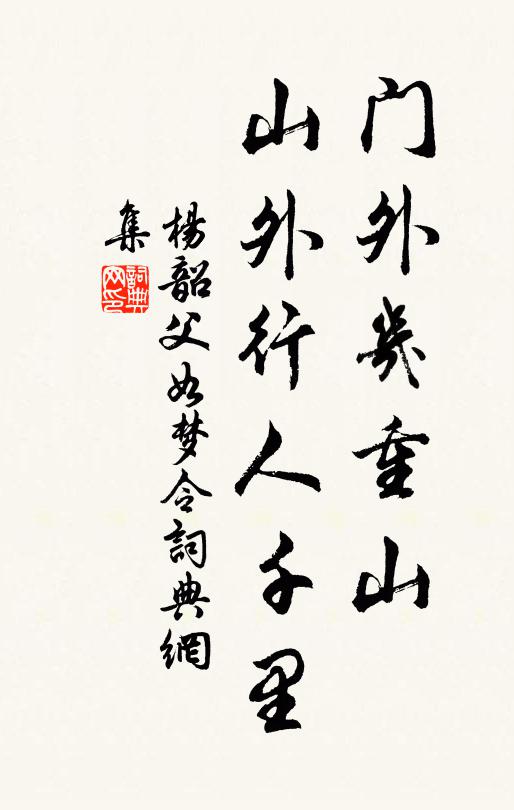 门外幾重山
山外行人千里
楊韶父如梦令詞典網
集
詞典
网印